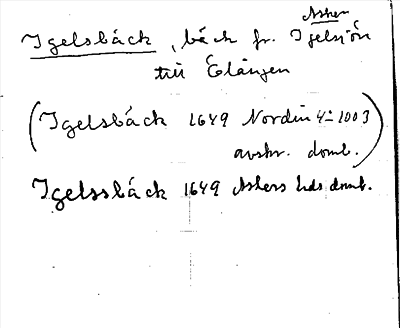 Asker
Igelsbäck, bäck fr. Igelsjön
till Elången
(Igelsbäck 1649 Nordin 4:o 1003
avskr. domb.)
Igelssbäck 1649 Askers hds domb.